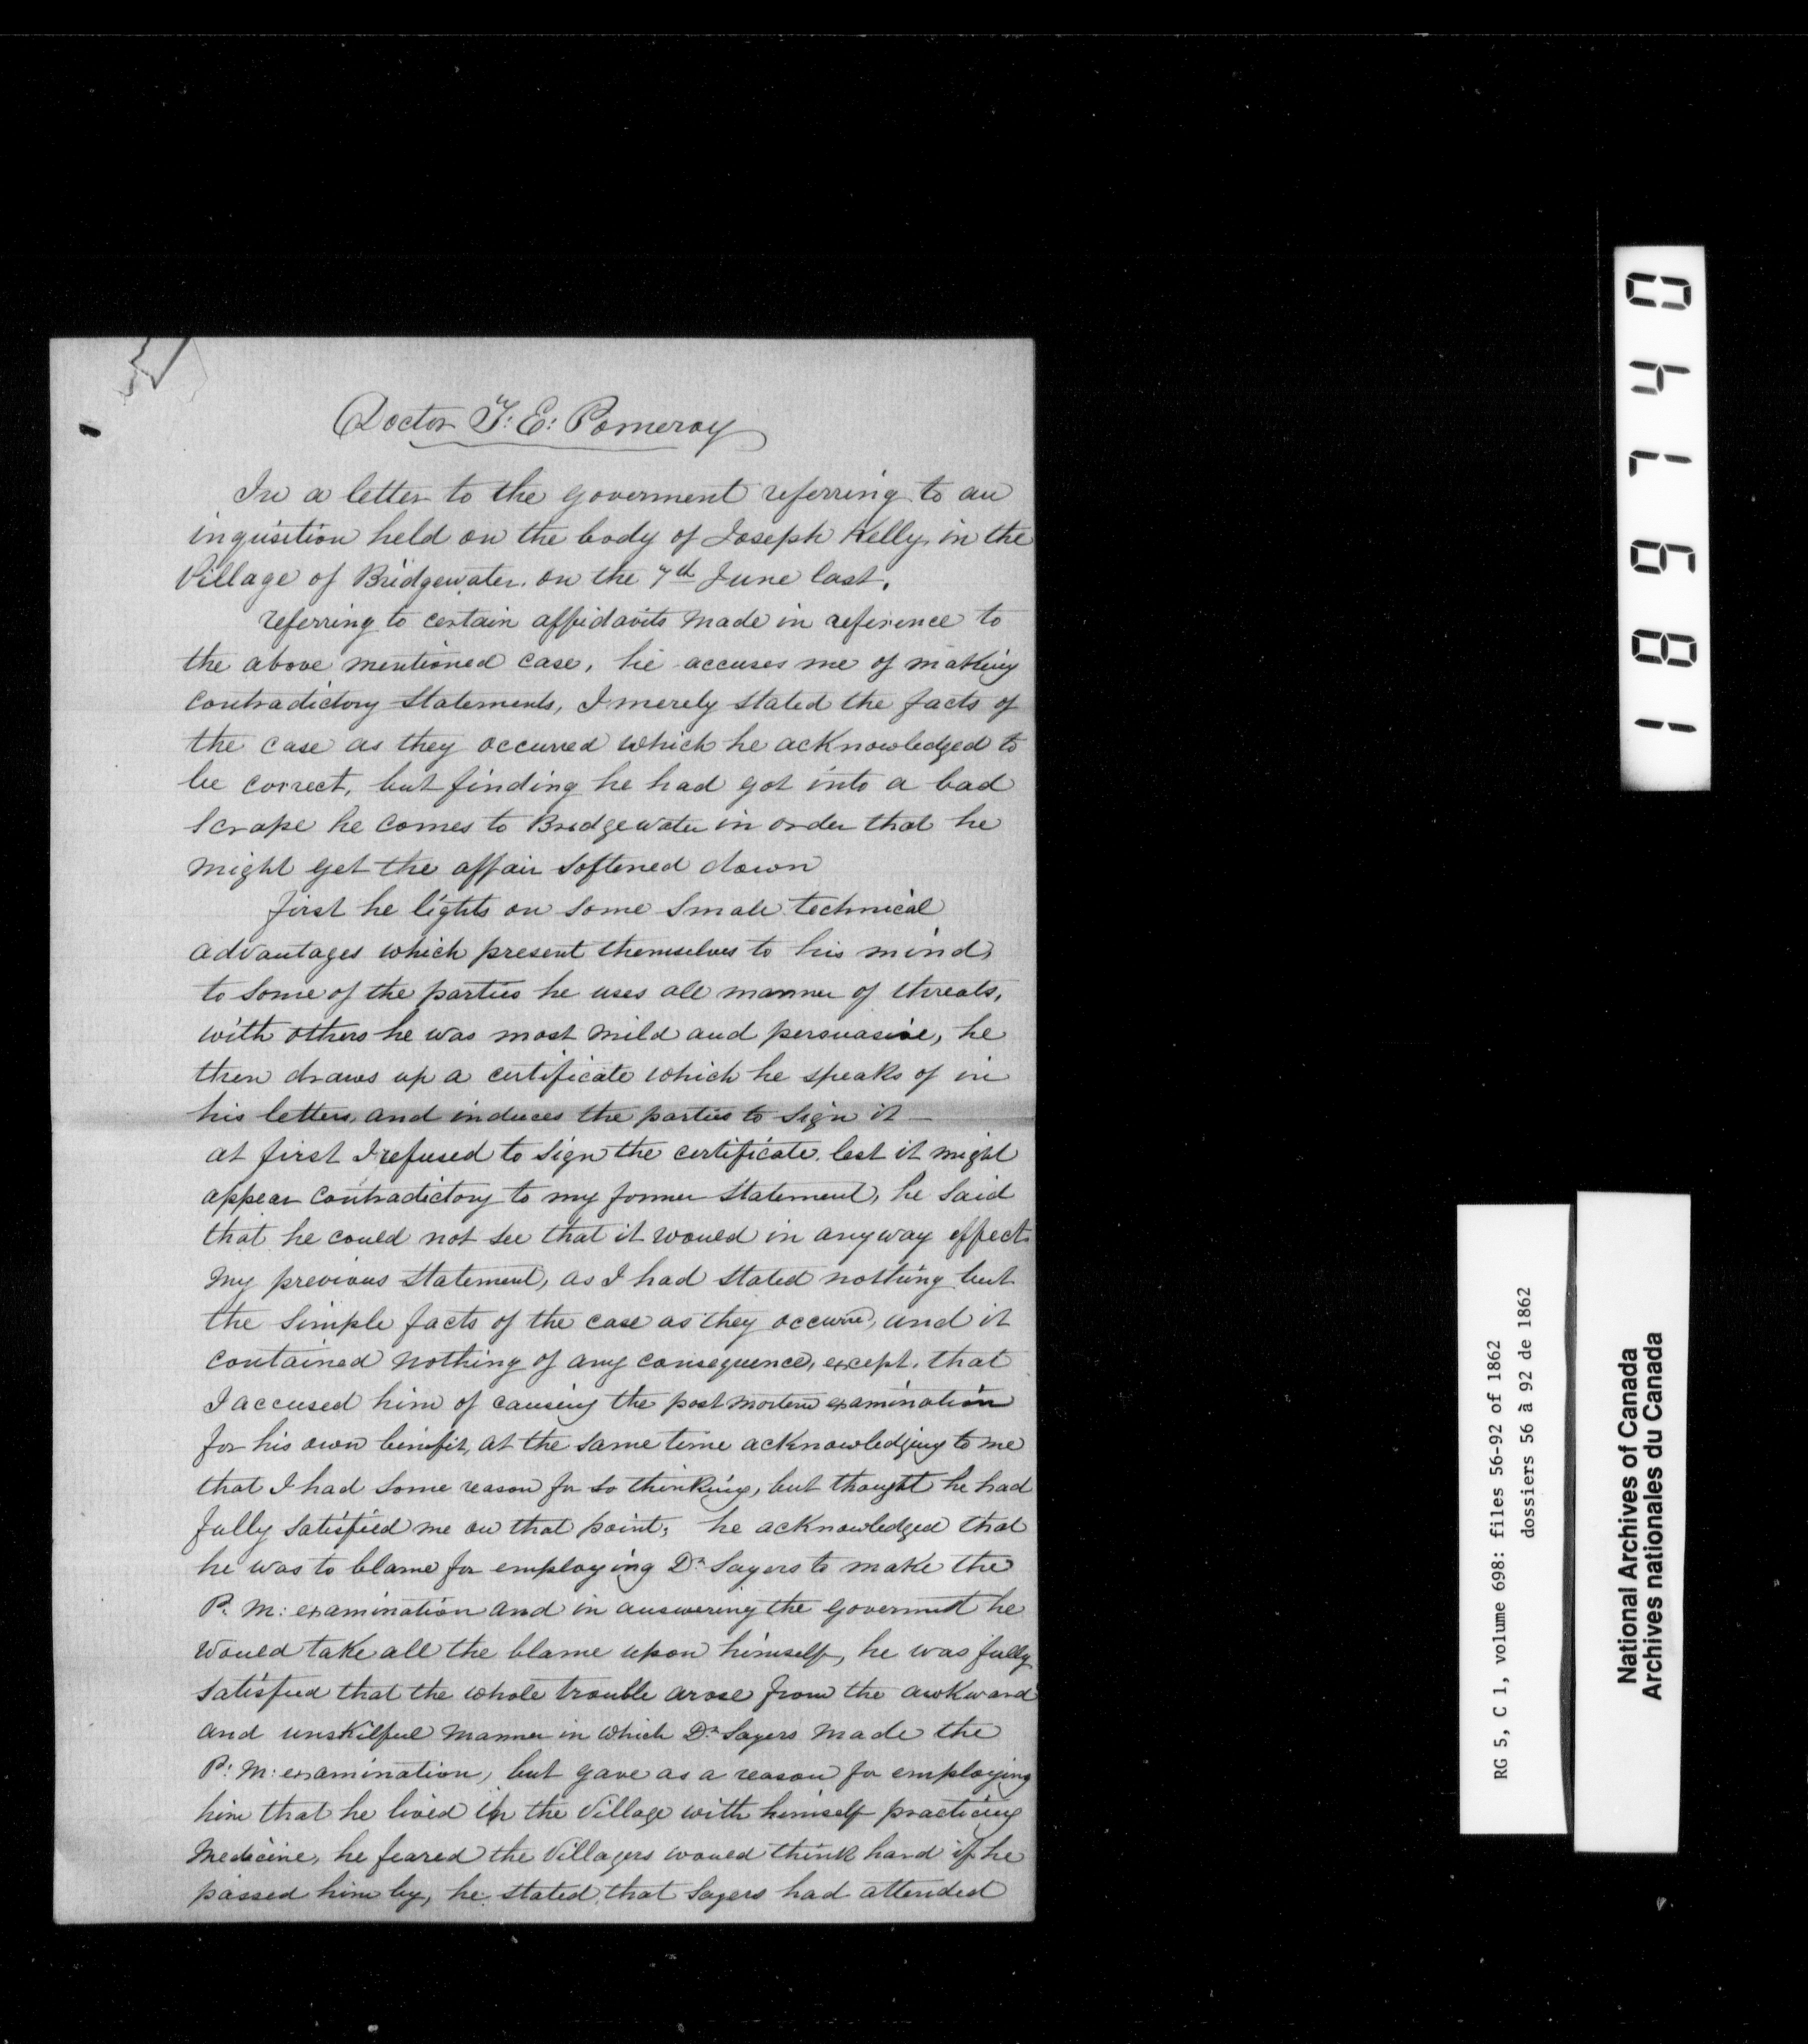 Doctor T: E: Pomeroy
In a letter to the goverment referring to an
inqusition held on the body of Joseph Kelly, in the
Village of Bridgewater. on the 7th June last.
referring to certain affidavits made in reference to
the above mentioned case, he accuses me of making
contradictory statements, I merely stated the facts of
the case as they occurred which he acknowledged to
be correct, but finding he had got into a bad
scrape he comes to Bridgewater in order that he
might get the affair softened down
first he lights on some small technical
advantages which present themselves to his mind,
to some of the parties he uses all manner of threats,
with others he was most mild and persuasive, he
then draws up a certificate which he speaks of in
his letter, and induces the parties to sign it —
at first I refused to sign the certificate. lest it might
appear contradictory to my former statement, he said
that he could not see that it would in anyway effect
my previous statement, as I had stated nothing but
the simple facts of the case as they occurred, and it
contained nothing of any consequence, except. that
I accused him of causing the post mortem examination
for his own benifit, at the same time acknowledging to me
that I had some reason for so thinking, but thought he had
fully satisfied me on that point; he acknowledged that
he was to blame for employing Dr Sayers to make the
P: M: examination and in answering the goverment he
would take all the blame upon himself, he was fully
satisfied that the whole trouble arose from the awkward
and unskilful manner in which Dr Sayers made the
P: M: examination, but gave as a reason for employing
him that he lived in the Village with himself practicing
Medicine, he feared the Villagers would think hard if he
passed him by, he stated that Sayers had attended
1816740
RG 5, C 1, volume 698: files 56-92 of 1862
dossiers 56 à 92 de 1862
National Archives of Canada
Archives nationales du Canada